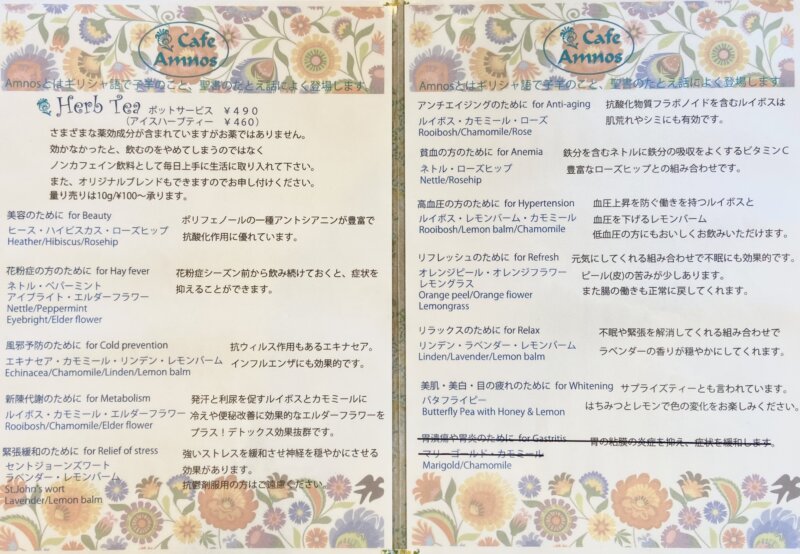 Cafe
Amnos
Amnosとはギリシャ語で子羊のこと、聖書のたとえ話によく登場します。
Herb Tea ポットサービス ￥490
（アイスハーブティー ￥460）
さまざまな薬効成分が含まれていますがお薬ではありません。
効かなかったと、飲むのをやめてしまうのではなく
ノンカフェイン飲料として毎日上手に生活に取り入れて下さい。
また、オリジナルブレンドもできますのでお申し付けください。
量り売りは10g/¥100～承ります。
美容のために for Beauty
ヒース・ハイビスカス・ローズヒップ
Heather/Hibiscus/Rosehip
ポリフェノールの一種アントシアニンが豊富で
抗酸化作用に優れています。
花粉症の方のために for Hay fever
ネトル・ペパーミント
アイブライト・エルダーフラワー
Nettle/Peppermint
Eyebright/Elder flower
花粉症シーズン前から飲み続けておくと、症状を
抑えることができます。
風邪予防のために for Cold prevention
エキナセア・カモミール・リンデン・レモンバーム
Echinacea/Chamomile/Linden/Lemon balm
抗ウィルス作用もあるエキナセア。
インフルエンザにも効果的です。
新陳代謝のために for Metabolism
ルイボス・カモミール・エルダーフラワー
Rooibosh/Chamomile/Elder flower
発汗と利尿を促すルイボスとカモミールに
冷えや便秘改善に効果的なエルダーフラワーを
プラス！デトックス効果抜群です。
緊張緩和のために for Relief of stress
セントジョーンズワート
ラベンダー・レモンバーム
St.John's wort
Lavender/Lemon balm
強いストレスを緩和させ神経を穏やかにさせる
効果があります。
抗鬱剤服用の方はご遠慮ください。
Cafe
Amnos
Amnosとはギリシャ語で子羊のこと、聖書のたとえ話によく登場します。
アンチエイジングのために for Anti-aging
ルイボス・カモミール・ローズ
Rooibosh/Chamomile/Rose
抗酸化物質フラボノイドを含むルイボスは
肌荒れやシミにも有効です。
貧血の方のために for Anemia
ネトル・ローズヒップ
Nettle/Rosehip
鉄分を含むネトルに鉄分の吸収をよくするビタミンC
豊富なローズヒップとの組み合わせです。
高血圧の方のために for Hypertension
ルイボス・レモンバーム・カモミール
Rooibosh/Lemon balm/Chamomile
血圧上昇を防ぐ働きを持つルイボスと
血圧を下げるレモンバーム
低血圧の方にもおいしくお飲みいただけます。
リフレッシュのために for Refresh
オレンジピール・オレンジフラワー
レモングラス
Orange peel/Orange flower
Lemongrass
元気にしてくれる組み合わせで不眠にも効果的です。
ピール(皮)の苦みが少しあります。
また腸の働きも正常に戻してくれます。
リラックスのために for Relax
リンデン・ラベンダー・レモンバーム
Linden/Lavender/Lemon balm
不眠や緊張を解消してくれる組み合わせで
ラベンダーの香りが穏やかにしてくれます。
美肌・美白・目の疲れのために for Whitening
バタフライピー
Butterfly Pea with Honey & Lemon
サプライズティーとも言われています。
はちみつとレモンで色の変化をお楽しみください。
胃潰瘍や胃炎のために for Gastritis
マリーゴールド・カモミール
Marigold/Chamomile
胃の粘膜の炎症を抑え、症状を緩和します。